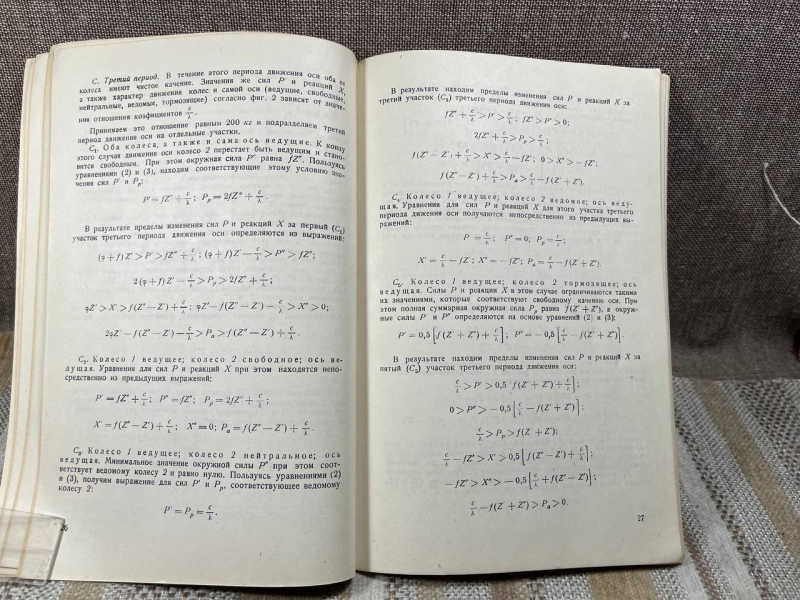 С. Третий период. В течение этого периода движения оси оба ее
колеса имеют чистое качение. Значения же сил P и реакций X,
а также характер движения колес и самой оси (ведущие, свободные,
нейтральные, ведомые, тормозящие) согласно фиг. 2 зависят от значе-
ния отношения коэфициентов c/λ.
Принимаем это отношение равным 200 кг и подразделяем третий
период движения оси на отдельные участки.
C₁. Оба колеса, а также и сама ось ведущие. К концу
этого случая движения оси колесо 2 перестает быть ведущим и стано-
вится свободным. При этом окружная сила P″ равна fZ″. Пользуясь
уравнениями (2) и (3), находим соответствующие этому условию зна-
чения сил P′ и Pₚ:
P′ = fZ″ + c/λ; Pₚ = 2fZ″ + c/λ.
В результате пределы изменения сил P и реакций X за первый (C₁)
участок третьего периода движения оси определяются из выражений:
(φ + f) Z′ > P′ > fZ″ + c/λ; (φ + f) Z′ − c/λ > P″ > fZ″;
2 (φ + f) Z′ − c/λ > Pₚ > 2fZ″ + c/λ;
φZ′ > X′ > f (Z″ − Z′) + c/λ; φZ′ − f (Z″ − Z′) − c/λ > X″ > 0;
2φZ′ − f (Z″ − Z′) − c/λ > Pₐ > f (Z″ − Z′) + c/λ.
C₂. Колесо 1 ведущее; колесо 2 свободное; ось ве-
дущая. Уравнения для сил P и реакций X при этом находятся непо-
средственно из предыдущих выражений:
P′ = fZ″ + c/λ; P″ = fZ″; Pₚ = 2fZ″ + c/λ;
X′ = f (Z″ − Z′) + c/λ; X″ = 0; Pₐ = f (Z″ − Z′) + c/λ.
C₃. Колесо 1 ведущее; колесо 2 нейтральное; ось
ведущая. Минимальное значение окружной силы P″ при этом соот-
ветствует ведомому колесу 2 и равно нулю. Пользуясь уравнениями (2)
и (3), получим выражение для сил P′ и Pₚ, соответствующее ведомому
колесу 2:
P′ = Pₚ = c/λ.
26
В результате находим пределы изменения сил P и реакций X за
третий участок (C₃) третьего периода движения оси:
fZ″ + c/λ > P′ > c/λ; fZ″ > P″ > 0;
2fZ″ + c/λ > Pₚ > c/λ;
f (Z″ − Z′) + c/λ > X′ > c/λ − fZ′; 0 > X″ > − fZ″;
f (Z″ − Z′) + c/λ > Pₐ > c/λ − f (Z′ + Z″).
C₄ Колесо 1 ведущее; колесо 2 ведомое; ось веду-
щая. Уравнения для сил P и реакций X для этого участка третьего
периода движения оси получаются непосредственно из предыдущих вы-
ражений:
P′ = c/λ; P″ = 0; Pₚ = c/λ;
X′ = c/λ − fZ′; X″ = − fZ″; Pₐ = c/λ − f (Z′ + Z″).
C₅. Колесо 1 ведущее; колесо 2 тормозящее; ось
ведущая. Силы P и реакции X в этом случае ограничиваются такими
их значениями, которые соответствуют свободному качению оси. При
этом полная суммарная окружная сила Pₚ равна f (Z′ + Z″), а окруж-
ные силы P′ и P″ определяются на основе уравнений (2) и (3):
P′ = 0,5 [f (Z′ + Z″) + c/λ]; P″ = − 0,5 [c/λ − f (Z′ + Z″)].
В результате находим пределы изменения сил P и реакций X за
пятый (C₅) участок третьего периода движения оси:
c/λ > P′ > 0,5 [f (Z′ + Z″) + c/λ];
0 > P″ > − 0,5 [c/λ − f (Z′ + Z″)];
c/λ > Pₚ > f (Z′ + Z″);
c/λ − fZ′ > X′ > 0,5 [f (Z″ − Z′) + c/λ];
− fZ″ > X″ > − 0,5 [c/λ + f (Z″ − Z′)];
c/λ − f (Z′ + Z″) > Pₐ > 0.
27